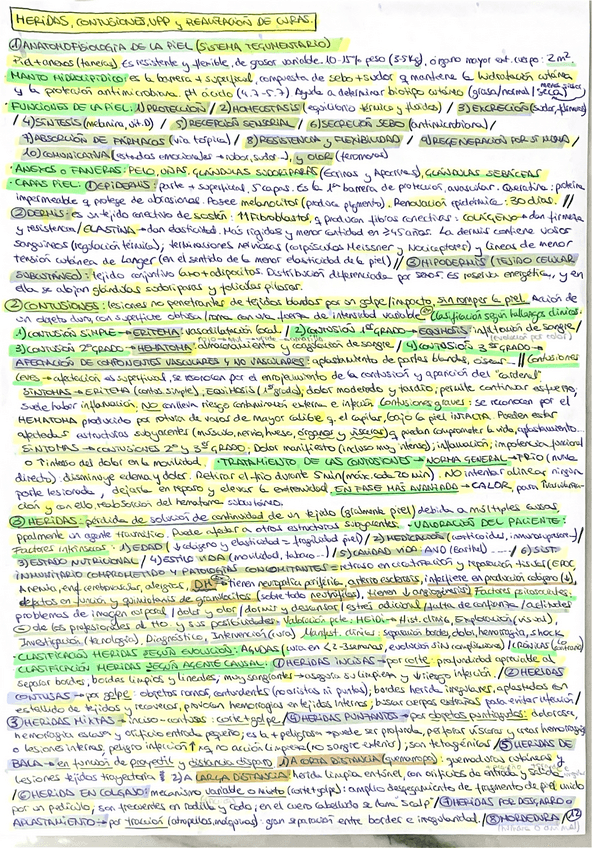 HERIDAS, CONTUSIONES, UPP y REALIZACIÓN DE CURAS.
① ANATOMOFISIOLOGÍA DE LA PIEL (SISTEMA TEGUMENTARIO)
Piel + anexos (faneras) Es resistente y flexible, de grosor variable. 10-15% peso (3-5kg), órgano mayor ext. cuerpo: 2m².
MANTO HIDROLIPÍDICO: es la barrera + superficial, compuesta de sebo + sudor q mantiene la hidratación cutánea
y la protección antimicrobiana. pH ácido (4.2-5.7) Ayuda a determinar biotipo cutáneo (grasa/normal/seca)
· FUNCIONES DE LA PIEL: 1) PROTECCIÓN / 2) HOMEOSTASIS (equilibrio térmico y fluidos) / 3) EXCRECIÓN (sudor,
/ 4) SÍNTESIS (melanina, vit.D) / 5) RECEPCIÓN SENSORIAL / 6) SECRECIÓN SEBO (antimicrobiana) /
7) ABSORCIÓN DE FÁRMACOS (vía tópica) / 8) RESISTENCIA y FLEXIBILIDAD / 9) REGENERACIÓN POR SÍ MISMA /
10) COMUNICATIVA (estados emocionales → rubor, sudor..), y OLOR (feromonas)
· ANEXOS o FANERAS: PELO, UÑAS, GLÁNDULAS SUDORÍPARAS (Ecrinas y Apocrinas), GLÁNDULAS SEBÁCEAS
· CAPAS PIEL: ① EPIDERMIS: parte + superficial, 5 capas. Es la 1ª barrera de protección, avascular. Queratina: proteína
impermeable q protege de abrasiones. Posee melanocitos (produce pigmento). Renovación epidérmica: 30 días. //
② DERMIS: es un tejido conectivo de sostén: ↑↑Fibroblastos, q producen fibras conectivas: COLÁGENO → dan firmeza
y resistencia / ELASTINA → dan elasticidad. Más rígidas y menor cantidad en ≥45 años. La dermis contiene vasos
sanguíneos (regulación térmica); terminaciones nerviosas (corpúsculos Meissner y Nociceptores) y Líneas de menor
tensión cutánea de Langer (en el sentido de la menor elasticidad de la piel) // ③ HIPODERMIS (TEJIDO CELULAR
SUBCUTÁNEO): tejido conjuntivo laxo + adipocitos. Distribución diferenciada por sexos. Es reserva energética, y en
ella se alojan glándulas sudoríparas y folículos pilosos.
② CONTUSIONES: lesiones no penetrantes de tejidos blandos por un golpe/impacto, sin romper la piel. Acción de
un objeto duro, con superficie obtusa/roma con una fuerza de intensidad variable. Clasificación según hallazgos clínicos.
1) CONTUSIÓN SIMPLE → ERITEMA: vasodilatación local. / 2) CONTUSIÓN 1er GRADO → EQUIMOSIS: infiltración de sangre /
3) CONTUSIÓN 2º GRADO → HEMATOMA: almacenamiento y coagulación de sangre / 4) CONTUSIÓN 3er GRADO →
AFECTACIÓN DE COMPONENTES VASCULARES Y NO VASCULARES: aplastamiento de partes blandas, óseas... // Contusiones
leves → afectación es superficial, se reconocen por el enrojecimiento de la contusión y aparición del "cardenal"
SÍNTOMAS → ERITEMA (contus. simple), EQUIMOSIS (1er grado), dolor moderado y tardío; permite continuar esfuerzo;
suele haber inflamación. NO conlleva riesgo contaminación externa e infección Contusiones graves: se reconocen por el
HEMATOMA producido por rotura de vasos de mayor calibre q. el capilar, bajo la piel INTACTA. Pueden estar
afectadas estructuras subyacentes (músculo, nervio, hueso, órganos y vísceras) q puedan comprometer la vida, aplastamiento...
SÍNTOMAS → CONTUSIONES 2º y 3er GRADO: Dolor manifiesto (incluso muy intenso); inflamación, impotencia funcional
o ↑ intenso del dolor en la movilidad. · TRATAMIENTO DE LAS CONTUSIONES → NORMA GENERAL → FRÍO (nunca
directo): disminuye edema y dolor. Retirar el frío durante 5 min (máx. cada 20 min). NO intentar alinear ningún
parte lesionada, dejarla en reposo y elevar la extremidad. EN FASE MÁS AVANZADA → CALOR, para
ción y con ello, reabsorción del hematoma subcutáneo.
③ HERIDAS: pérdida de solución de continuidad de un tejido (gralmente piel) debido a múltiples causas,
gralmente un agente traumático. Puede afectar a otras estructuras subyacentes. · VALORACIÓN DEL PACIENTE:
Factores intrínsecos: 1) EDAD (↓colágeno y elasticidad = fragilidad piel) / 2) MEDICACIÓN (corticoides, inmunosupres...) /
3) ESTADO NUTRICIONAL / 4) ESTILO VIDA (movilidad, tabaco...) / 5) CALIDAD VIDA: AVD (Barthel) ..... / 6) SIST.
INMUNITARIO COMPROMETIDO y PATOLOGÍAS CONCOMITANTES = retraso en cicatrización y reparación tisular (EPOC,
Anemia, enf. cerebrovascular, alergias, DM → tienen neuropatía periférica, arterioesclerosis, interfiere en producción colágeno (↓),
defectos en función y quimiotaxis de granulocitos (sobre todo neutrófilos), tienen ↓ angiogénesis) Factores psicosociales:
problemas de imagen corporal / dolor y olor / dormir y descansar / estrés adicional / falta de confianza / actitudes
⊖ de los profesionales al tto y sus posibilidades. Valoración pcte. HERIDA → Hist. clínica, Exploración (visual),
Investigación (tecnología), Diagnóstico, Intervención (cura) Manifest. clínicas: separación bordes, dolor, hemorragia, shock.
· CLASIFICACIÓN HERIDAS SEGÚN EVOLUCIÓN: AGUDAS (cura en ≤2-3 semanas, evolución sin complicaciones) / CRÓNICAS (lo contrario)
CLASIFICACIÓN HERIDAS SEGÚN AGENTE CAUSAL. ① HERIDAS INCISAS → por corte: profundidad apreciable al
separar bordes, bordas limpios y lineales; muy sangrantes → asegura su limpieza y ↓ riesgo infección. / ② HERIDAS
CONTUSAS → por golpe: objetos romos, contundentes (no aristas ni puntas), bordes herida irregulares, aplastados con
estallido de tejidos y recovecos, provocan hemorragia en tejidos internos; buscar cuerpos extraños para evitar infección /
③ HERIDAS MIXTAS → inciso-contusas: corte + golpe / ④ HERIDAS PUNZANTES → por objetos puntiagudos: dolorosas,
hemorragia escasa y orificio entrada pequeño; es la + peligrosa → puede ser profunda, perforar vísceras y crear hemorragias
o lesiones internas, peligro infección ↑ xq no acción limpieza (no sangre exterior), son tetanígenas / ⑤ HERIDAS DE
BALA → en función de proyectil y distancia disparo 1) A CORTA DISTANCIA (quemarropa): quemaduras cutáneas y
lesiones tejidos trayectoria / 2) A LARGA DISTANCIA: herida limpia en túnel, con orificios de entrada y salida
/ ⑥ HERIDAS EN COLGAJO: mecanismo variable o mixto (corte+golpe): amplio desgarramiento de fragmento de piel unido
por un pedículo, son frecuentes en rodilla y codo; en el cuero cabelludo se llama "Scalp" / ⑦ HERIDAS POR DESGARRO o
APLASTAMIENTO → por tracción (atropellos, máquinas): gran separación entre bordes e irregularidad. / ⑧ MORDEDURA /
(HUMANA O ANIMAL)